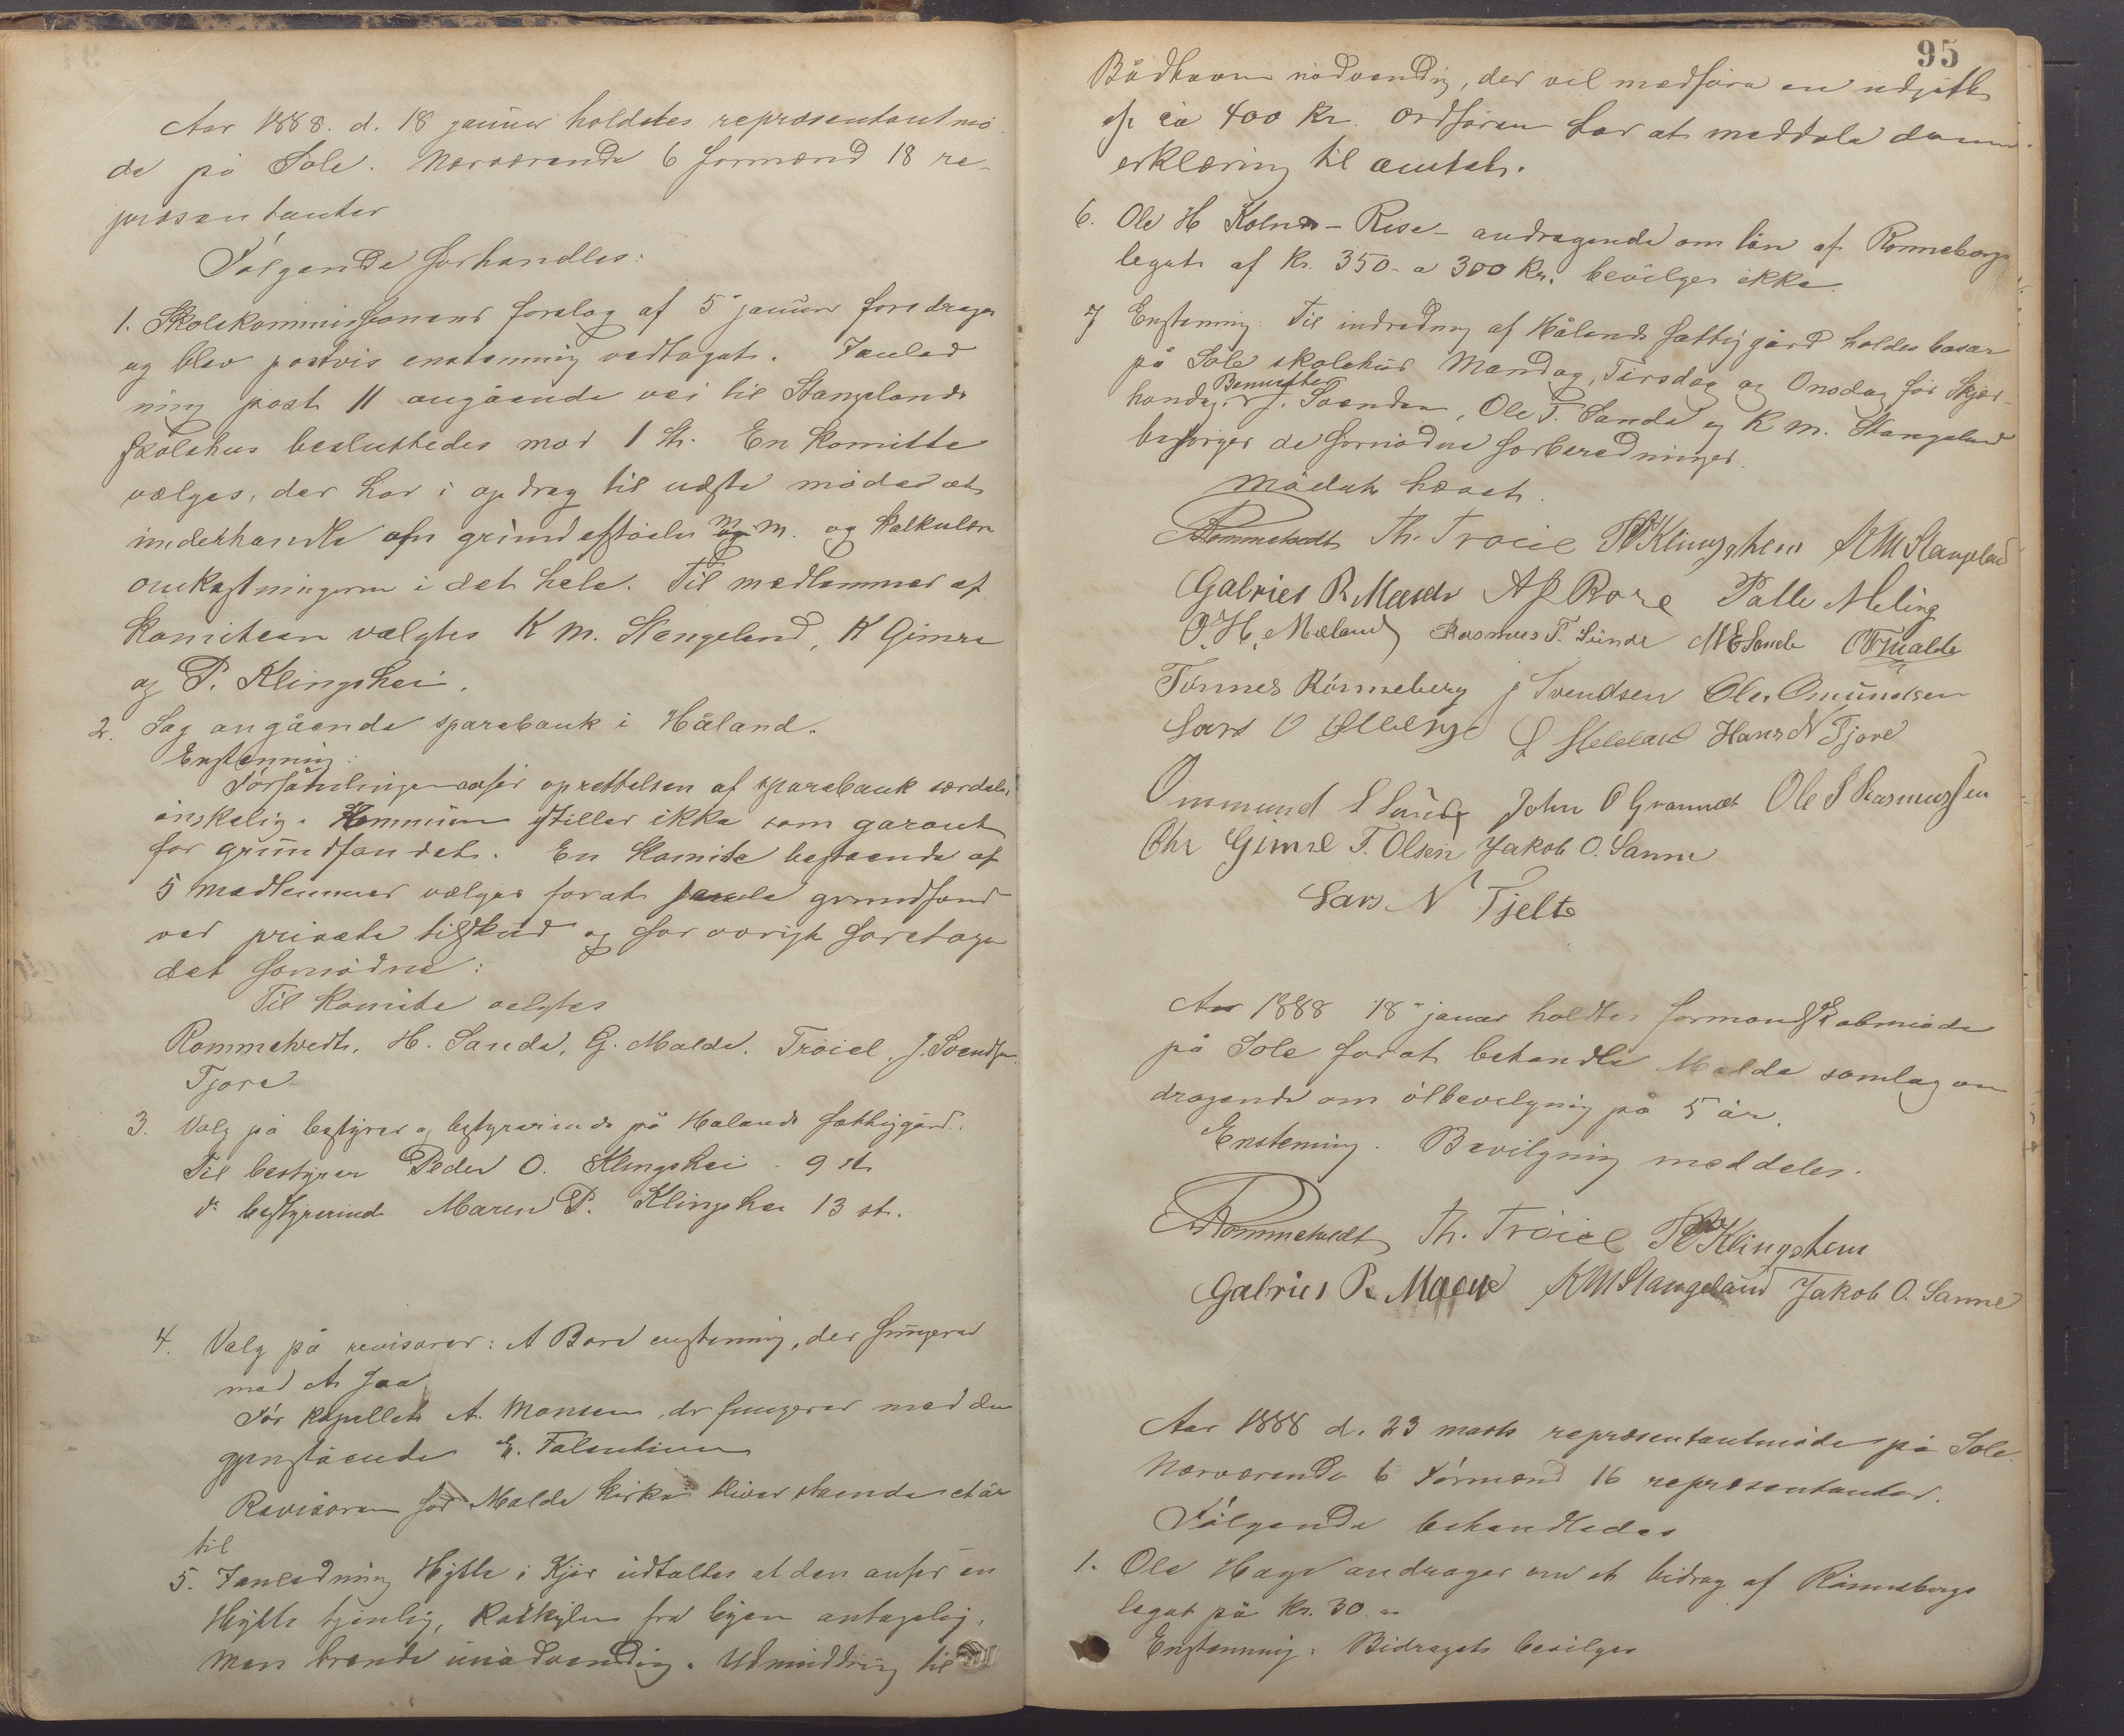 Aar 1888. d. 18 januar holdtes repræsentantmø
de på Sole. Nærværende 6 formænd 18 re-
præsentanter
Følgende forhandles:
1. Skolekommissionens forslag af 5 januar foredrages
og blev postvis enstemmig vedtaget. Ianled
ning post 11 angående vei til Stangelands
skolehus besluttedes mod 1 St. En komitte
vælges, der har i opdrag til næste møde at
underhandle om grundafståelse m. m. og kalkulere
omkostningerne i det hele. Til medlemmer af
komiteen valgtes K M. Stangeland, K Gimre
og P. Klingshei.
2. Sag angående sparebank i Håland.
Enstemmig:
Forsamlingen anser oprettelsen af sparebank særdeles
ønskelig. Kommunen stiller ikke som garant
for grundfondet. En komite bestaaende af
5 medlemmer vælges forat samle grundfond
ved private tilskud og forøvrigt foretage
det fornødne:
Til komite valgtes
Rommetvedt, H. Sande, G. Malde, Trøiel, J. Svendsen
Tjora
3. Valg på bestyrer og bestyrerinde på Hålands fattiggård.
Til bestyrer Peder O. Klingshei 9 st
do bestyrerinde Maren P. Klingshei 13 st.
4. Valg på revisorer: A Bore enstemmig, der fungerer
med A Joa
For kapellet A. Monsen, der fungerer med den
gjenstående E. Falentinsen
Revisoren for Malde kirke bliver stående et år
til
5. Ianledning Hytte i Kjør udtaltes at den anser en
Hytte tjenlig, antagelig,
men brønd unødvendig. Udmuddring til
95
Bådhavn nødvendig, der vil medføre en udgift
af ca 400 Kr. Ordføreren har at meddele denne
erklæring til amtet.
6. Ole H Kolnes - Risa - andragende om lån af Rønneberg
legat af Kr. 350 a 300 Kr. bevilges ikke.
7 Enstemmig: Til indredning af Hålands fattiggård holdes basar
på Sole skolehus Mandag, Tirsdag og Onsdag før Skjær-
J. Svendsen, Ole T. Sande og K M. Stangeland
besørger de fornødne forberedninger.
Mødet hævet.
Rommetvedt Th. Trøiel P Klingsheim KM Stangeland
Gabriel P. Meeve A J Bore Palle Meling
O. H. Mæland Rasmus T. Sunde M E Sande Malde
Tønnes Rønneberg J Svendsen Ole Omundsen
Lars O Ølberg Hans N Tjore
Ommund L Sande John O Grannes Ole S Rasmussen
Chr Gimre T. Olsen Jakob O. Sanne
Lars N Tjelte
Aar 1888 18 januar holdtes formandskabmøde
på Sole forat behandle Malde samlag an
dragende om ølbevilgning på 5 år.
Enstemmig. Bevilgning meddeles.
Rommetvedt Th. Trøiel P Klingsheim
Gabriel P. KM Stangeland Jakob O. Sanne
Aar 1888 d. 23 marts repræsentantmøde på Sole.
Nærværende 6 Formænd 16 repræsentanter.
Følgende behandledes
1. Ole Haga andrager om et bidrag af Rønnebergs
legat på Kr. 30
Enstemmig: Bidraget bevilges